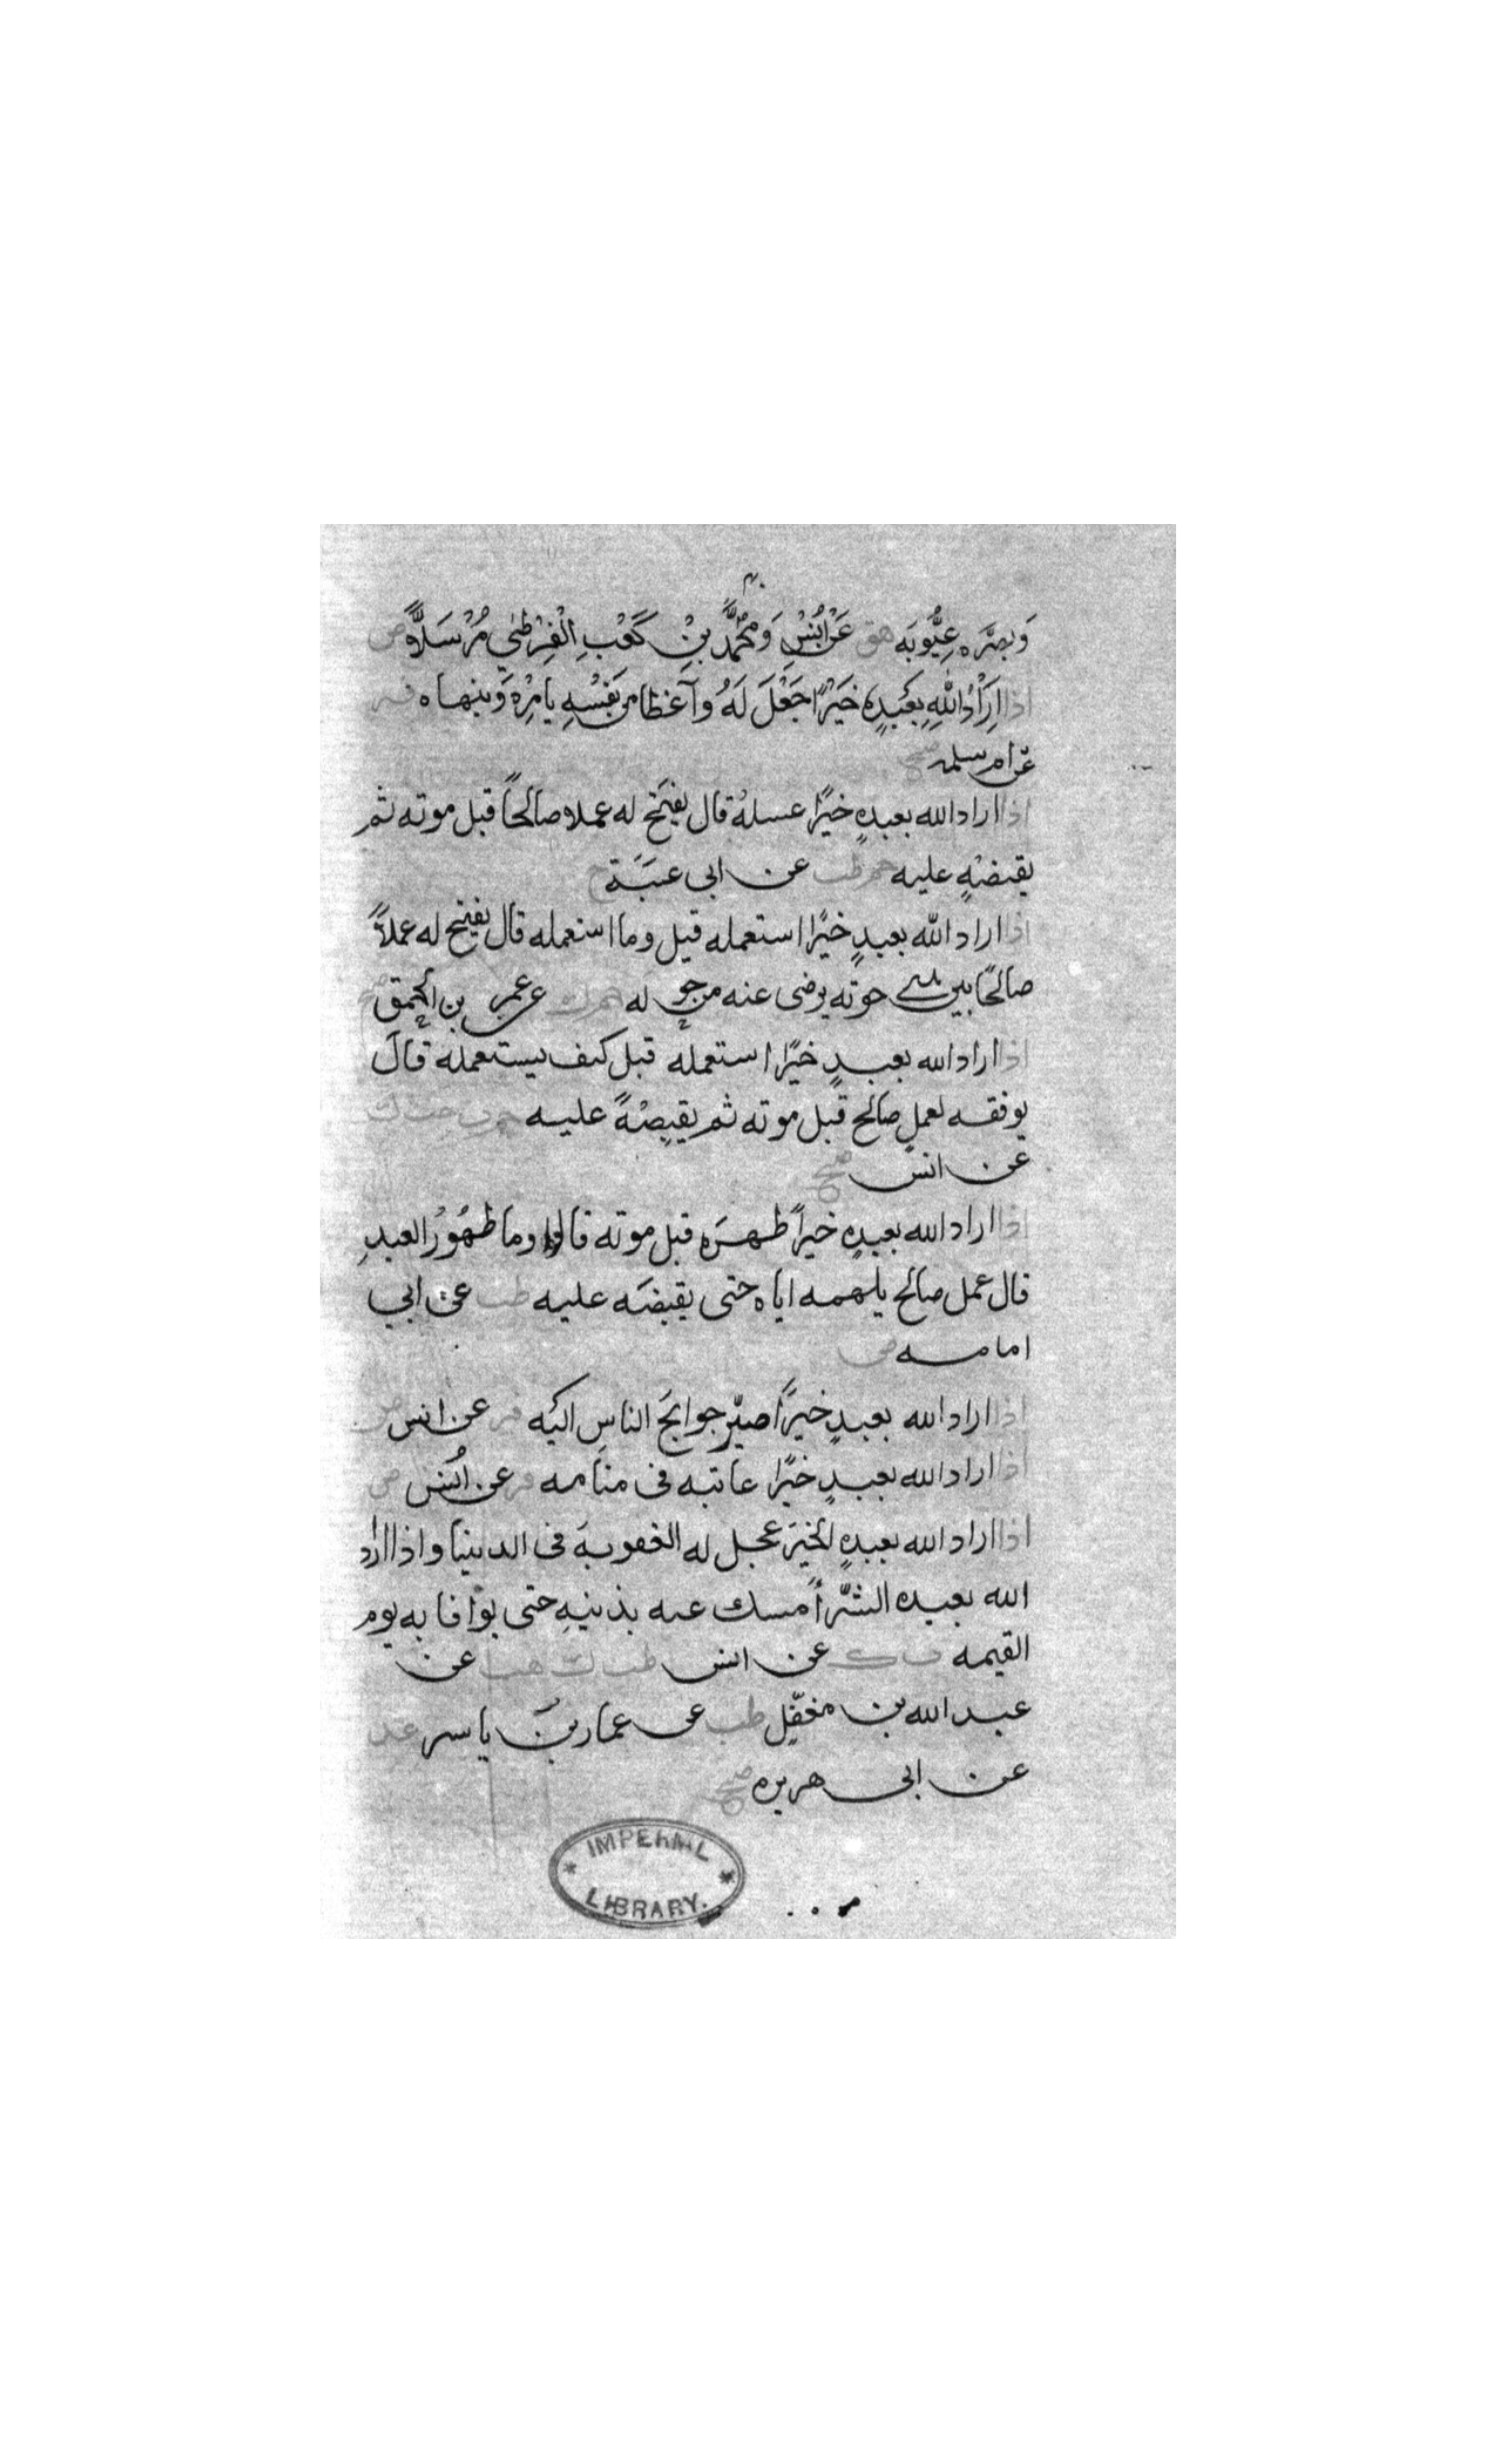 وَبصَّره عِيُوبَه هق عَنْ اَنَسْ وَمحُمَّدَّ بِنْ كَعْبِ الْقُرَظِي مُرْسَلاًّ ض
اذا اَرَاْدَ اللهِ بِعَبْدِهِ خَيْرًا جَعْلَ لَهُ وآعظا من نَفْسْهِ يامرْهُ وَينهاه فر
عن ام سلمه صح
اذا اراد الله بعبدهٍ خيرًا عسلهُ قال يفتح له عملا صالحًا قبل موته ثم
يقبضهٍ عليه حم طب عن ابى عنبَة ح
اذا اراد الله بعبدٍ خيرًا استعمله قيل وما استعمله قال يفتح له عملاً
صالحًا بين يدى موته يرضى عنه من حوله حم ك عن عمرو بن الحمق صح
اذا اراد الله بعبدٍ خيرًا استعمله قيل كيف يستعمله قال
يوفقه لعملٍ صالح قبل موته ثم يقبضهُ عليه حم ت حب ك
عن انس صح
اذا اراد الله بعبدهٍ خيراً طهرَه قبل موته قالوا وما طهُورُ العبدِ
قال عمل صالح يلهمه اياه حتى يقبضَه عليه طب عن ابي
امامه ض
اذا اراد الله بعبدٍ خيرًا صيّر حوايجَ الناسِ اليَه فر عن انس ض
اذا اراد الله بعبدٍ خيرًا عاتبه فى منامه فر عن انس ض
اذا اراد الله بعبدهٍ الخيَر عجل له العقوبة فى الدنيا واذا اراد
الله بعبده الشرَّ أمسك عنه بذنبهِ حتى يوافا به يوم
القيمه ت ك عن انس طب ك هب عن
عبد الله بن مغفّلٍ طب عن عمار بن ياسر عد
عن ابى هريره صح
IMPERIAL
LIBRARY.